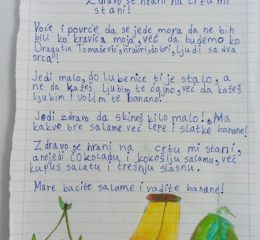 Zdravo se hrani na crtu mi
stani!
Voće i povrće, da se jede mora da ne bih
bili ko kravica moja, već da budemo ko
Dragutin Tomašević, hrabri, dobri, ljudi sa dva
srca!
Jedi malo, do lubenice ti je stalo, a
ne da kažeš ljubim te tajno, već da kažeš
ljubim i volim te banano!
Jedi zdravo da skineš kilo malo! Ma
kakvo bre salame već lepe i slatke banane!
Zdravo se hrani na crtu mi stani,
a ne jedi čokoladu i kokošiju salamu, već
kupus salatu i trešnju slasnu.
More bacite salame i vadite banane!